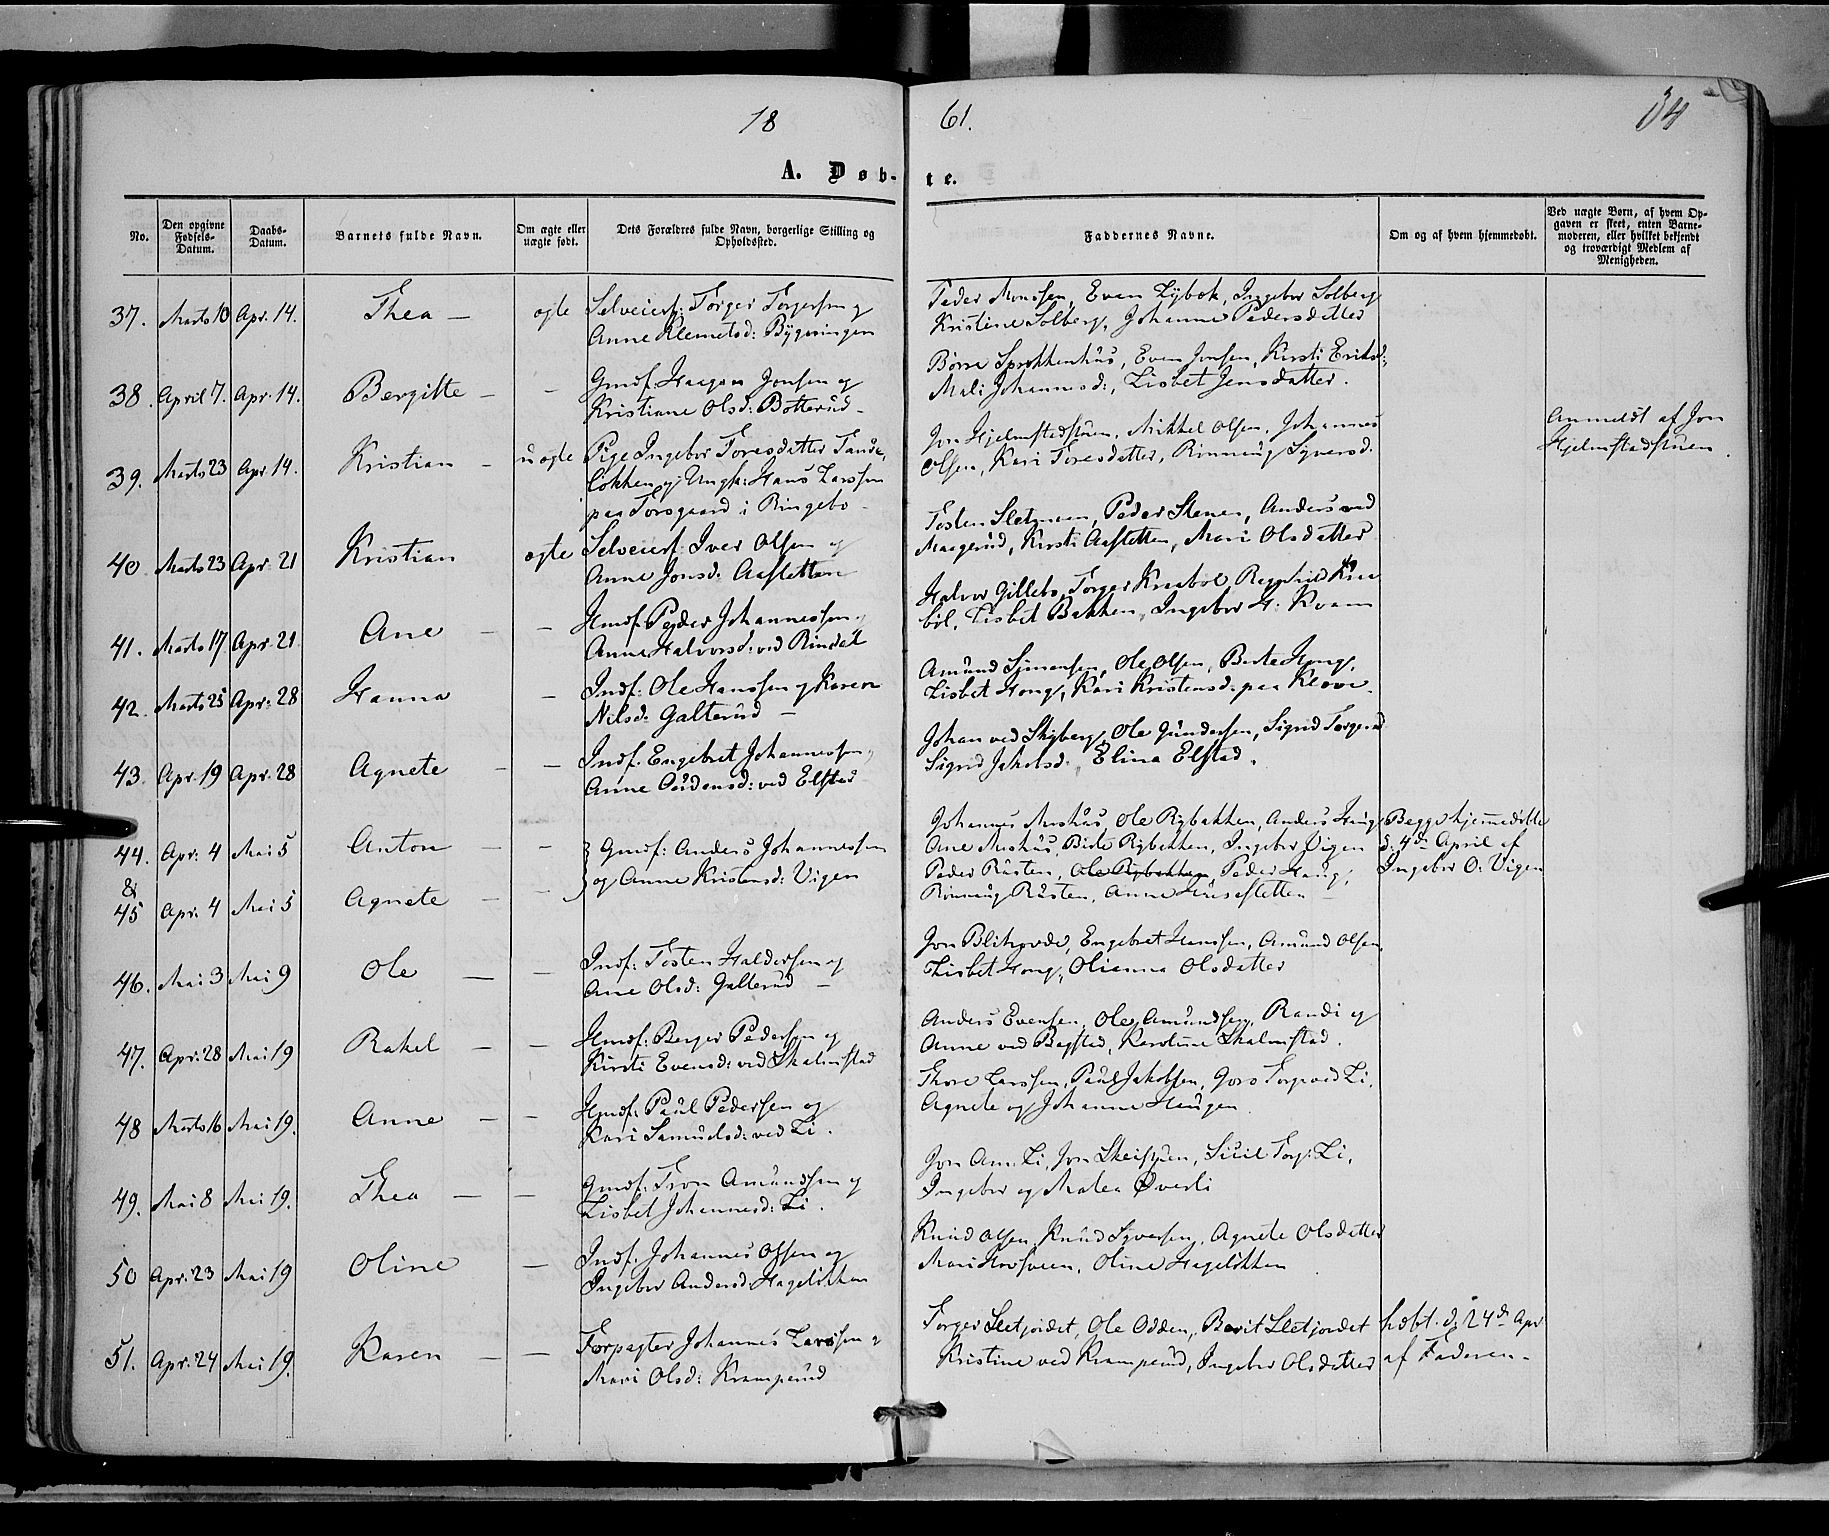 18 61. 34
A. Døb- te.
No. Den opgivne Fødsels-Datum. Daabs-Datum. Barnets fulde Navn. Om ægte eller uægte født. Dets Forældres fulde Navn, borgerlige Stilling og Opholdssted. Faddernes Navne. Om og af hvem hjemmedøbt. Ved uægte Børn, af hvem Opgaven er skeet, enten Barnemoderen, eller hvilket bekjendt og troværdigt Medlem af Menigheden.
37. Marts 10 Apr. 14. Thea — ægte Selveierf: Torger Torgersen og
Anne Klemetsd: Bygeringen
Peder Monsen, Even Lybek, Ingebor Solberg
Kristine Solberg, Johanne Pedersdatter
38. April 7. Apr. 14. Bergitte — — Gmdf. Haagen Jonsen og
Kristiane Olsd: Botterud —
Børre Sprekkenhus, Even Jonsen, Kirsti Eriksd:,
Mali Johannesd:, Lisbet Jensdatter.
39. Marts 23 Apr. 14. Kristian — uægte Pige Ingebor Toresdatter Tande-
løkken og Ungk: Hans Larssen
paa Torsgaard i Ringebo —
Jon Hjelmstadstuen, Mikkel Olsen, Johannes
Olsen, Kari Toresdatter, Rønnaug Syversd.
Anmeldt af Jon
Hjelmstadstuen.
40. Marts 23 Apr. 21 Kristian ægte Selveierf: Iver Olsen og
Anne Jonsd: Aasletten
Tosten Sletmoen, Peder Stenen, Anders ved
Maagerud, Kirsti Aasletten, Mari Olsdatter
41. Marts 17 Apr. 21 Ane — — Hmdf. Peder Johannessen og
Anne Halvorsd: ved Rindal
Halvor Gillebo, Torger Kraabøl, Ragnhild Kraa-
bøl, Lisbet Bakken, Ingebor H: Kvam
42. Marts 25 Apr: 28 Hanna — Indf: Ole Hanssen og Karen
Nilsd: Galterud —
Amund Simensen, Ole Olsen, Berte Hong,
Lisbet Hong, Kari Kristensd: paa Klove.
43. Apr. 19 Apr. 28 Agnete — — Indf. Engebret Johannessen,
Anne Audensd: ved Elstad
Johan ved Skyberg, Ole Gundersen, Sigrid Torgersd
Sigrid Jakobsd:, Elina Elstad.
44. Apr: 4 Mai 5 Anton — — } Gmdf: Anders Johannessen
Johannes Moshus, Ole Rybakken, Anders Haug,
Ane Moshus, Birte Rybakken, Ingebor Vigen
Begge hjemmedøbte
d: 4de April af
Ingebor O: Vigen
& 45 Apr: 4 Mai 5 Agnete — — } og Anne Kristensd: Vigen
Peder Rusten, Ole Rybakken, Peder Haug,
Rønnaug Rusten, Anne Husesletten —
46. Mai 3 Mai 9 Ole — — Indf: Tosten Haldorsen og
Ane Olsd: Galterud —
Jon Blikgvde, Engebret Hanssen, Amund Olsen,
Lisbet Hong, Olianna Olsdatter
47. Apr: 28 Mai 19 Rakel — — Hmdf: Berger Pedersen og
Kirsti Evensd: ved Skalmstad
Anders Evensen, Ole Amundsen, Randi og
Anne ved Bagstad, Karoline Skalmstad.
48 Marts 16 Mai 19. Anne — — Hmdf: Paul Pedersen og
Kari Samuelsd: ved Li.
Thore Larssen, Paul Jakobsen, Goro Torp ved Li,
Agnete og Johanne Haugen.
49. Mai 8 Mai 19. Thea — — Gmdf: Tron Amundsen og
Lisbet Johannesd: Li.
Jon Am: Li, Jon Skeistuen, Siril Torg: Li,
Ingebor og Malea Øverli
50 Apr: 23 Mai 19 Oline — Indf. Johannes Olsen og
Ingebor Andersd: Hageløkken
Knud Olsen, Knud Syversen, Agnete Olsdatter
Mari Hovsveen, Oline Hageløkken
51. Apr: 24 Mai 19. Karen — — Forpagter Johannes Larssen &
Mari Olsd: Kramperud
Torger Sletjordet, Ole Odden, Berit Sletjordet
Kristine ved Kramperud, Ingebor Olsdatter
hdbt. d: 24de Apr
af Faderen —